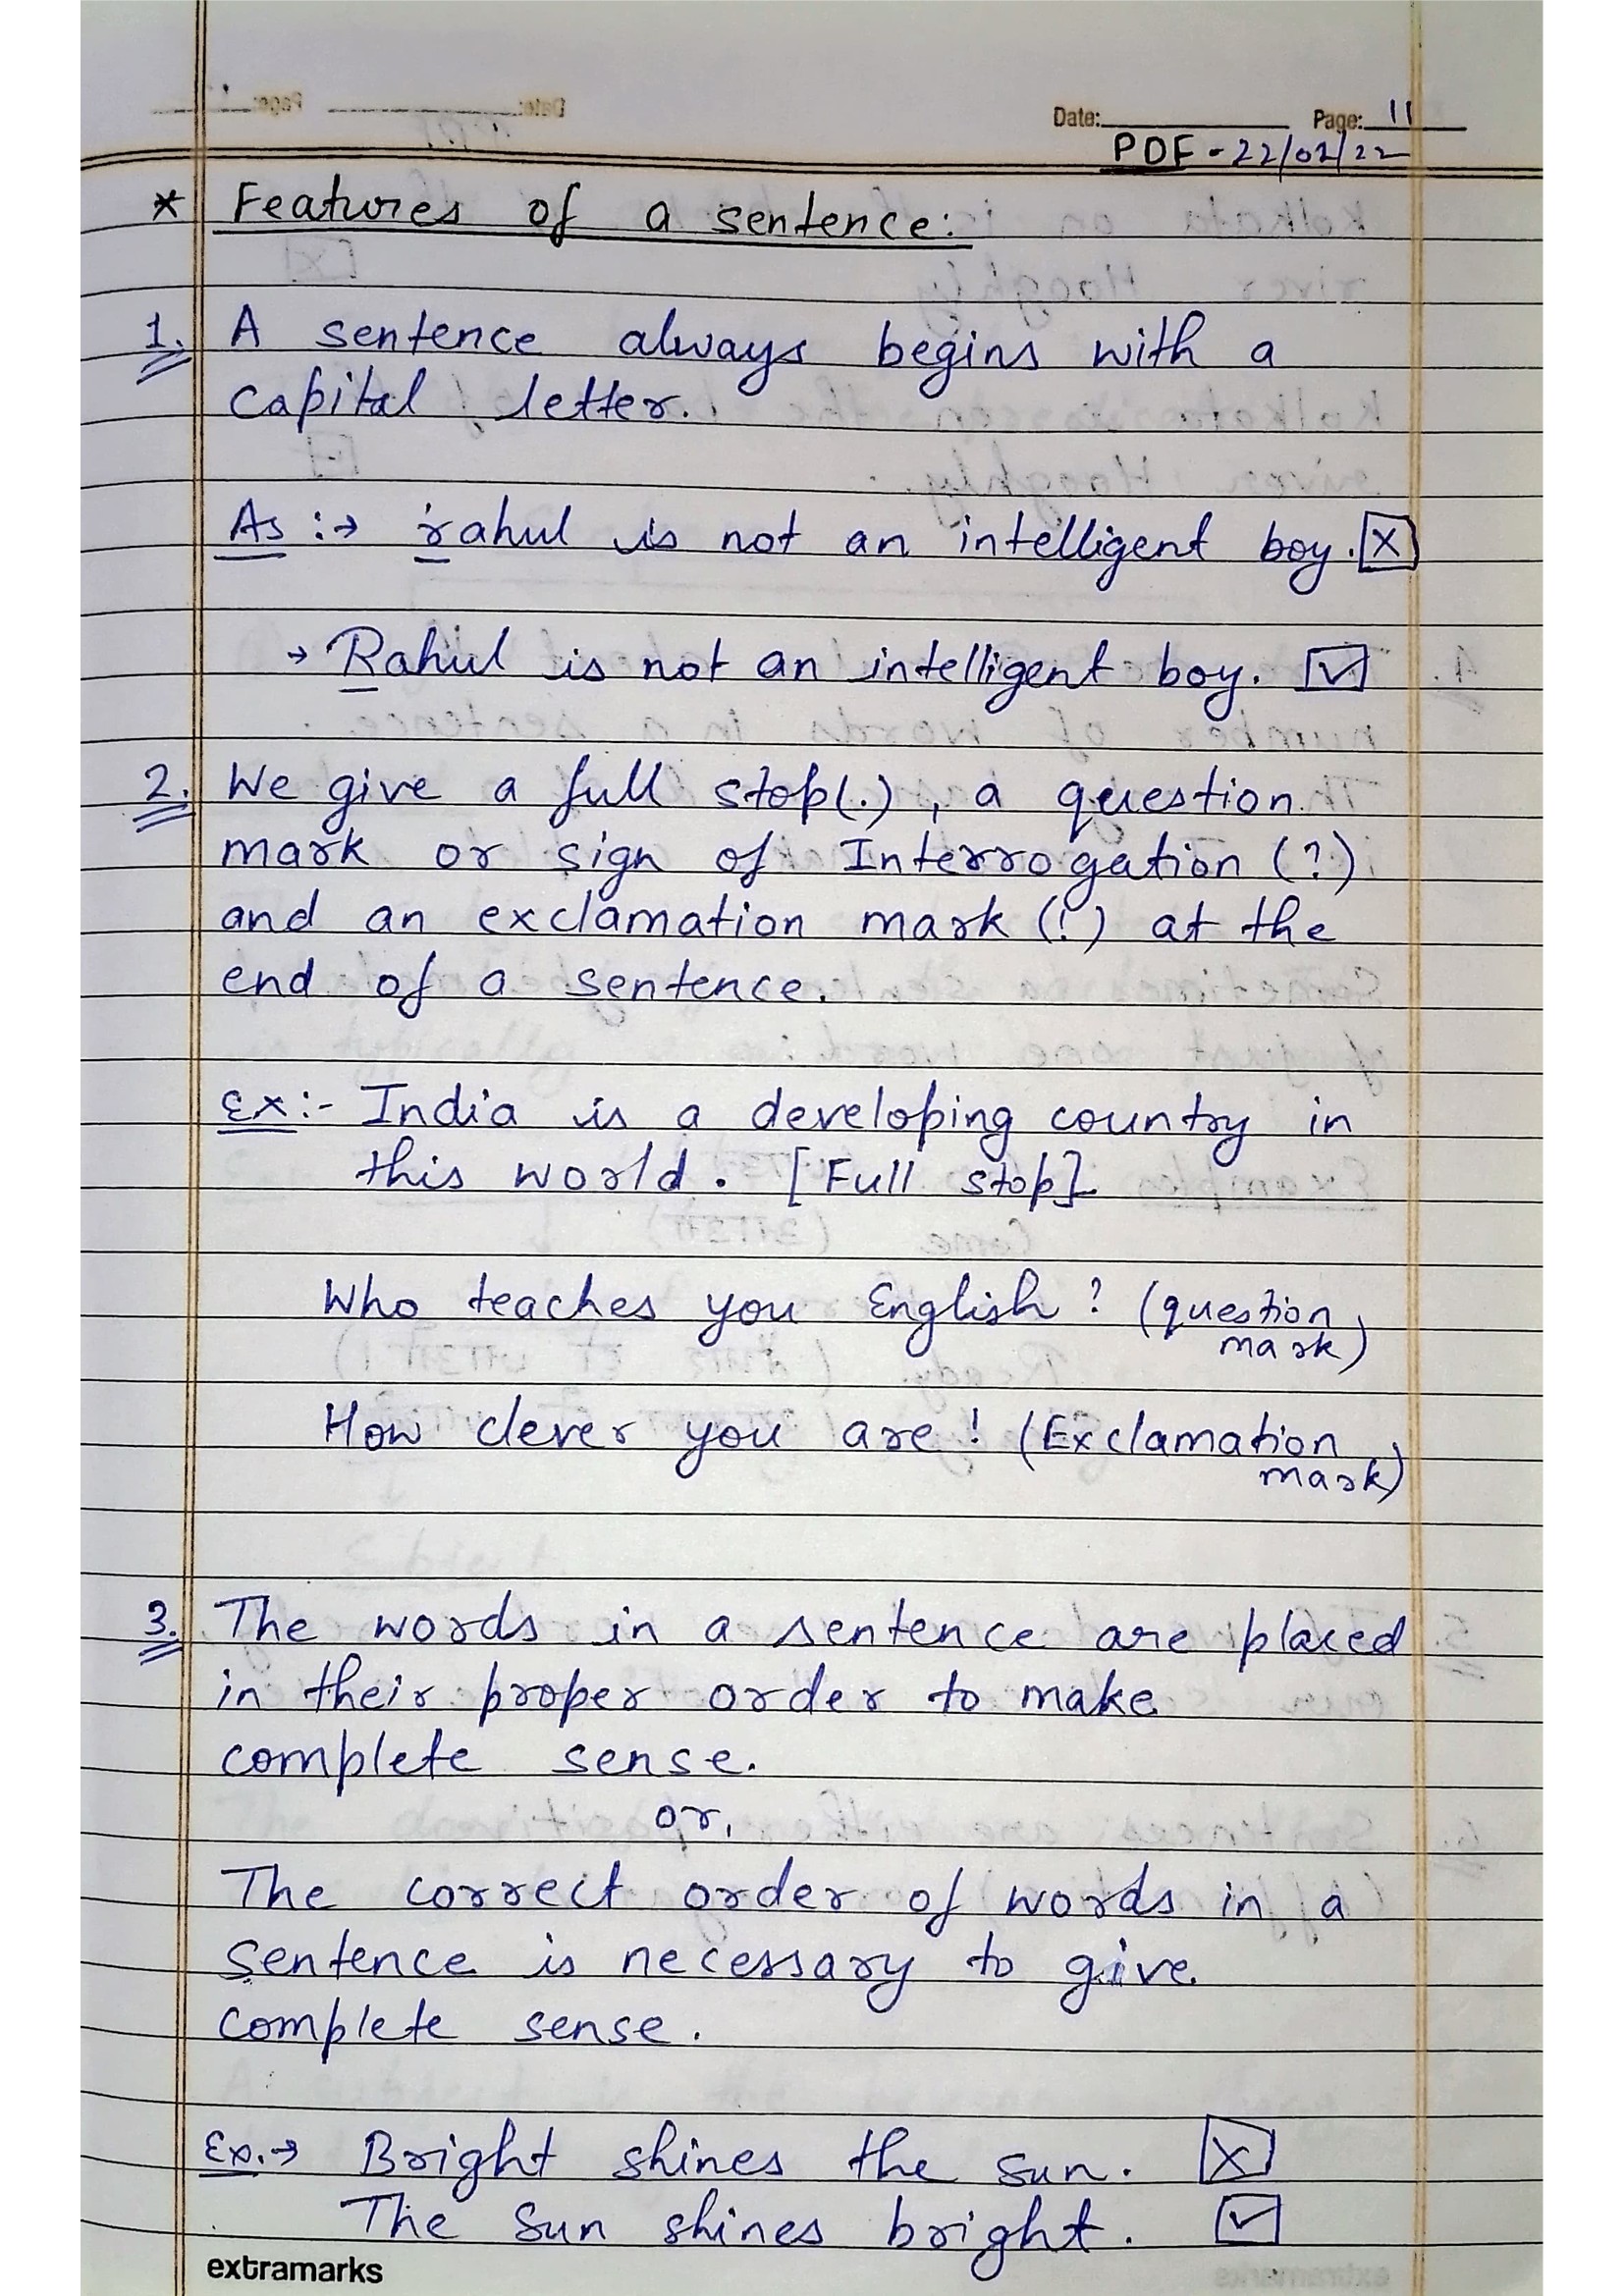 Date: Page: 11
PDF - 22/02/22
* Features of a sentence:
1. A sentence always begins with a
capital letter.
As :→ rahul is not an intelligent boy. [x]
→ Rahul is not an intelligent boy. [✓]
2. We give a full stop(.), a question
mark or sign of Interrogation (?)
and an exclamation mark (!) at the
end of a sentence.
Ex:- India is a developing country in
this world. [Full stop]
Who teaches you English? (question
mark)
How clever you are! (Exclamation
mark)
3. The words in a sentence are placed
in their proper order to make
complete sense.
or,
The correct order of words in a
sentence is necessary to give
complete sense.
Ex.→ Bright shines the sun. [x]
The Sun shines bright. [✓]
extramarks